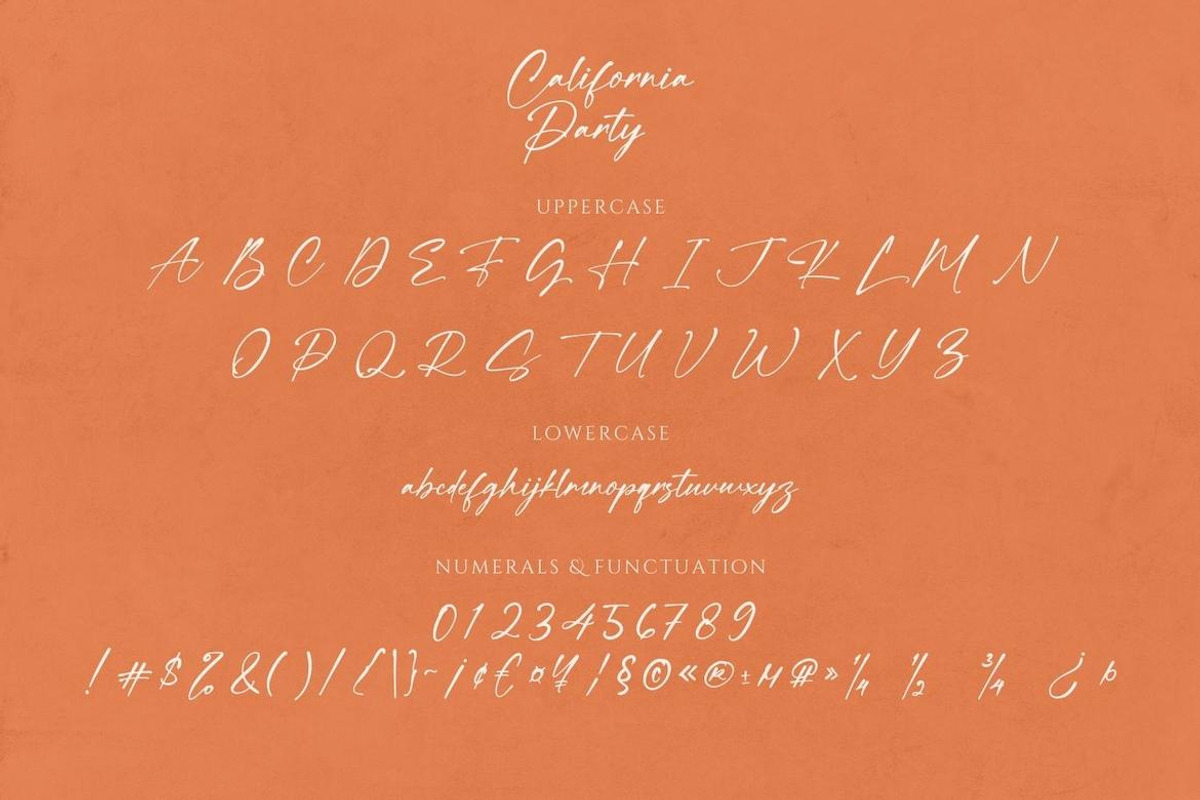 California
Party
UPPERCASE
A B C D E F G H I J K L M N
O P Q R S T U V W X Y Z
LOWERCASE
abcdefghijklmnopqrstuvwxyz
NUMERALS & FUNCTUATION
0 1 2 3 4 5 6 7 8 9
! # $ % & ( ) / { \ | } ~ ¡ ¢ € ¤ ¥ ¦ § © « ® ± » ¼ ½ ¾ ¿